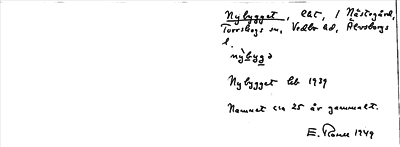 Nybygget, lht, / Nästegård,
Torrskogs sn, Vedbo hd, Älvsborgs
l.
nỳbyg̀ə
Nybygget lht 1939
Namnet ca 25 år gammalt.
E. 1949